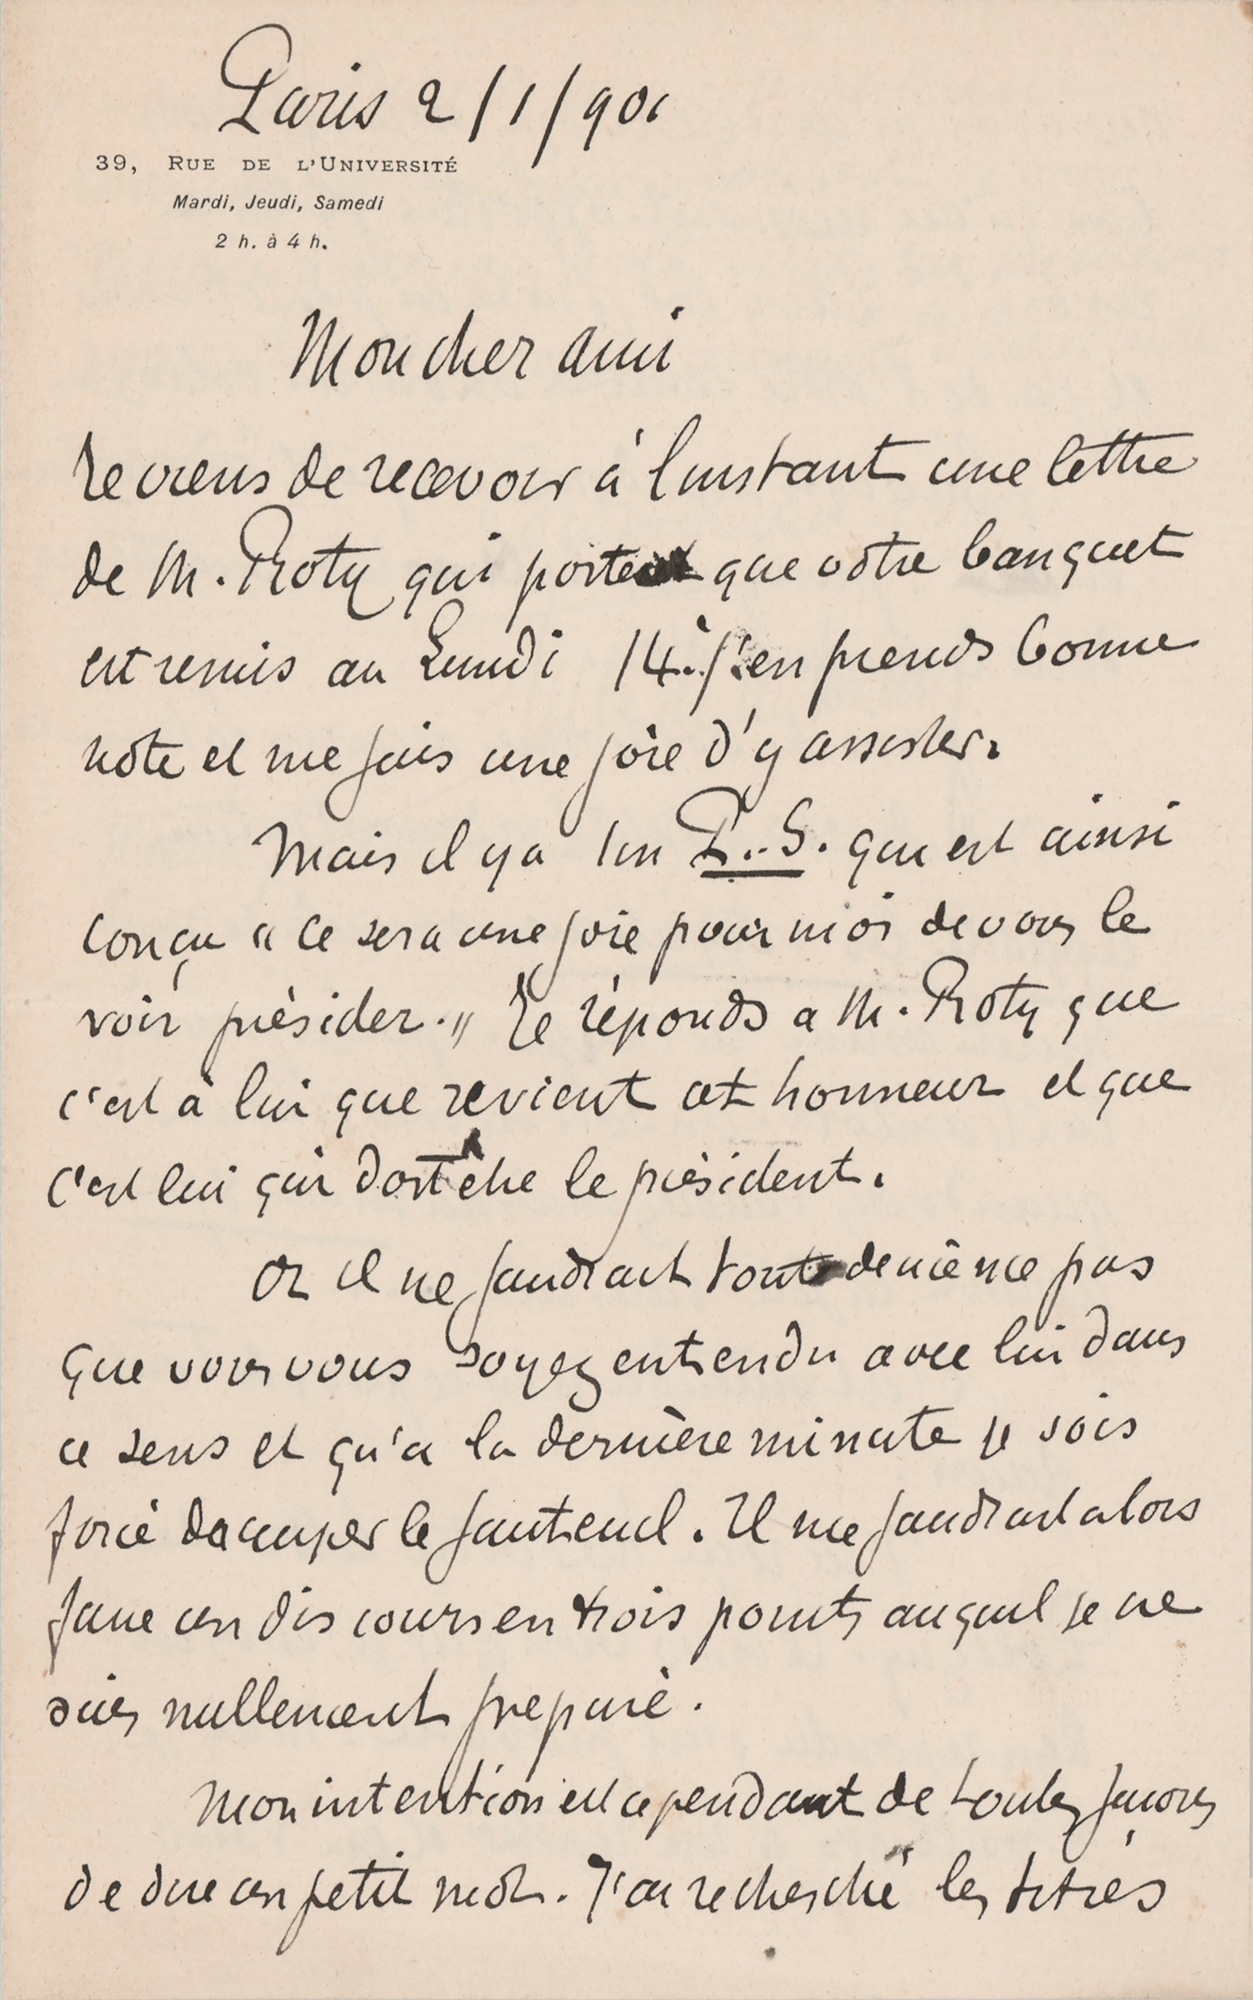 Paris 2/1/901
39, RUE DE L'UNIVERSITÉ
Mardi, Jeudi, Samedi
2 h. à 4 h.
Mon cher ami
Je viens de recevoir à l'instant une lettre
de M. Roty qui porte que votre banquet
est remis au Lundi 14. J'en prends bonne
note et me fais une joie d'y assister.
Mais il y a un P.-S. qui est ainsi
conçu « ce sera une joie pour moi de vous le
voir présider. » Je réponds a M. Roty que
c'est à lui que revient cet honneur et que
c'est lui qui doit être le président.
Or il ne faudrait tout de même pas
que vous vous soyez entendu avec lui dans
ce sens et qu'a la dernière minute je sois
forcé d'occuper le fauteuil. Il me faudrait alors
faire un discours en trois points auquel je ne
suis nullement preparé.
Mon intention est cependant de toutes façons
de dire un petit mot. J'ai recherché les titres